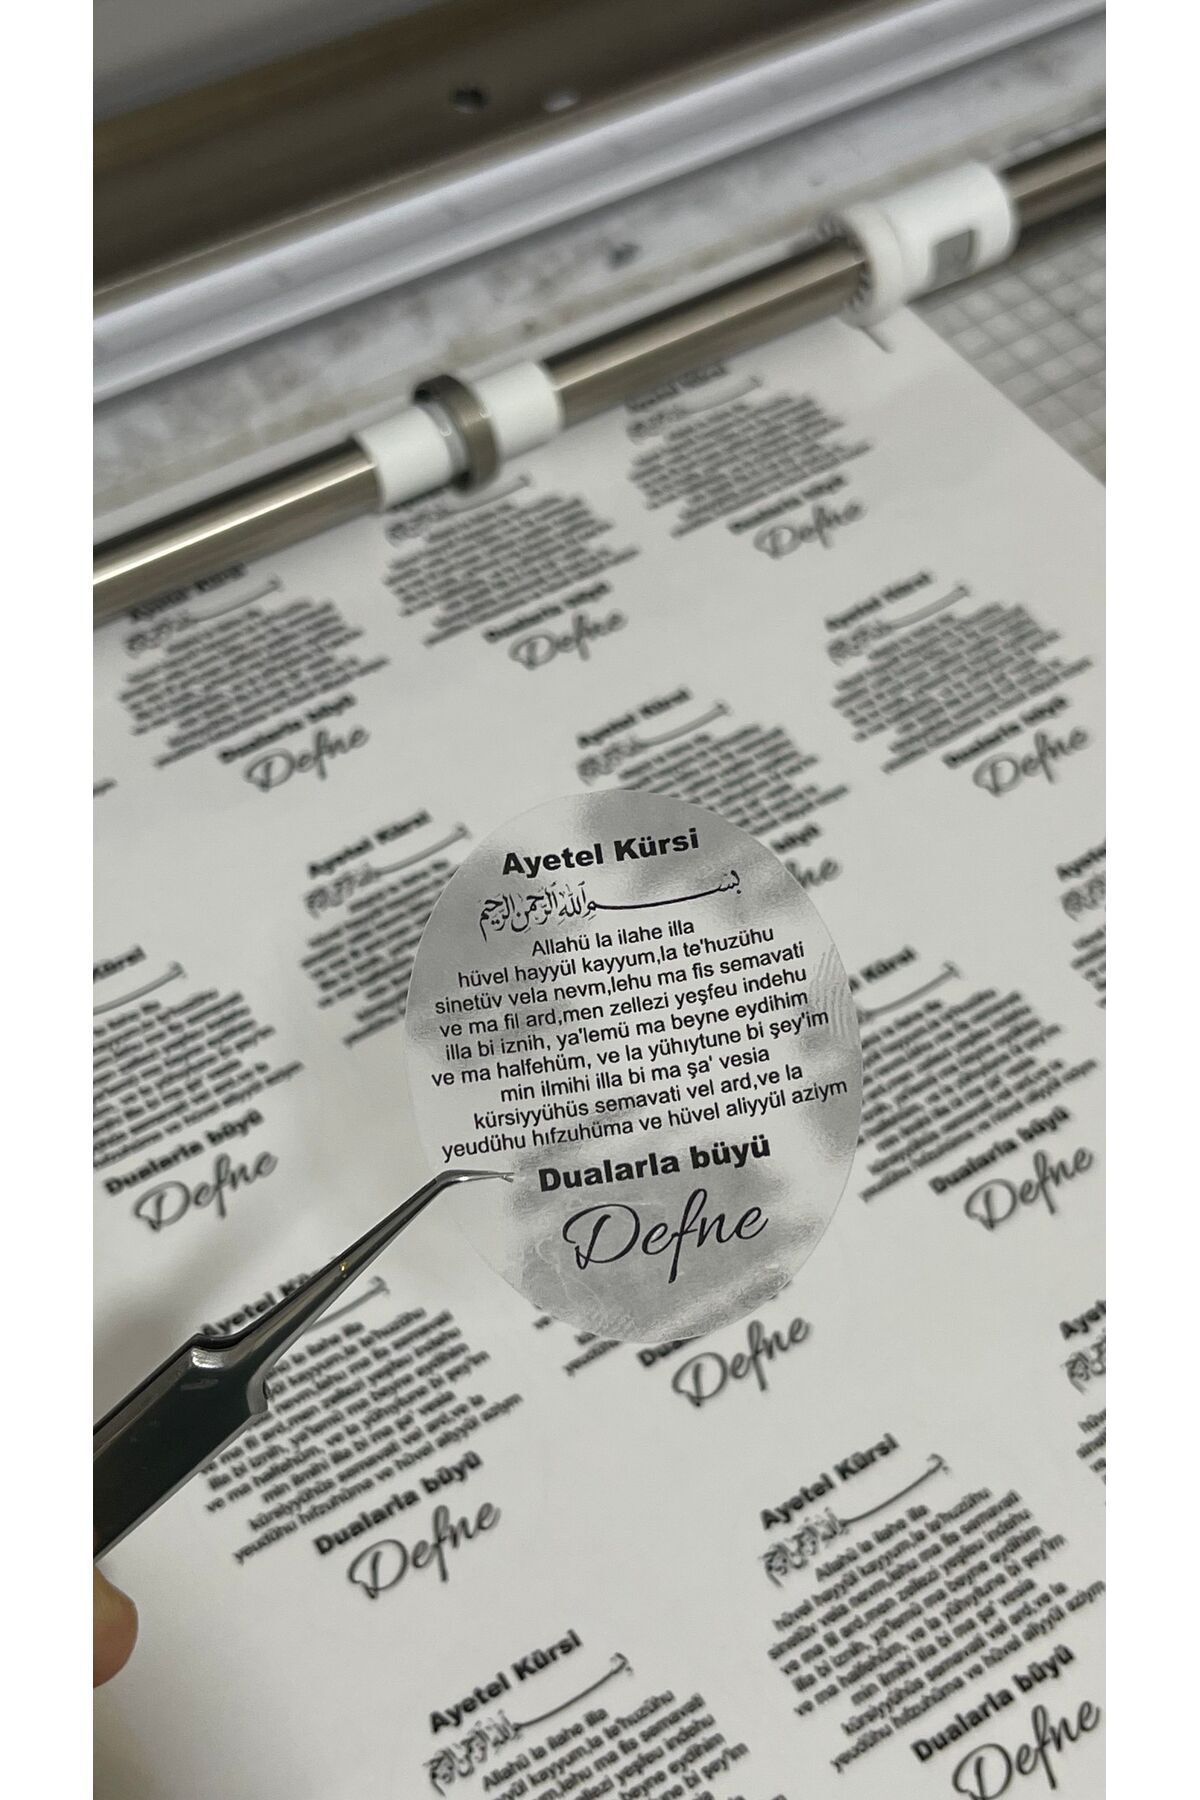 Ayetel Kürsi
بسم الله الرحمن الرحيم
Allahü la ilahe illa
hüvel hayyül kayyum,la te'huzühu
sinetüv vela nevm,lehu ma fis semavati
ve ma fil ard,men zellezi yeşfeu indehu
illa bi iznih, ya'lemü ma beyne eydihim
ve ma halfehüm, ve la yühıytune bi şey'im
min ilmihi illa bi ma şa' vesia
kürsiyyühüs semavati vel ard,ve la
yeudühu hıfzuhüma ve hüvel aliyyül aziym
Dualarla büyü
Defne